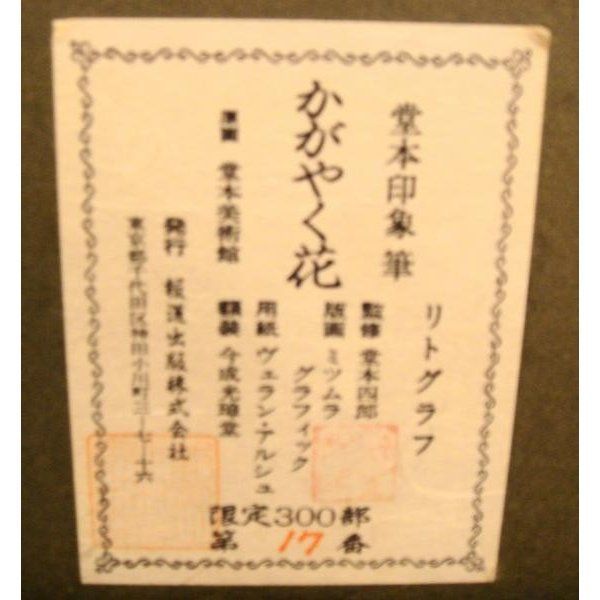 リトグラフ
堂本印象 筆
かがやく花
監修 堂本四郎
版画 ミツムラ
グラフィック
用紙 ヴェラン・アルシュ
額装 今成光璋堂
原画 堂本美術館
発行 報道出版株式会社
東京都千代田区神田小川町三ー七ー十六
限定300部
第 17 番